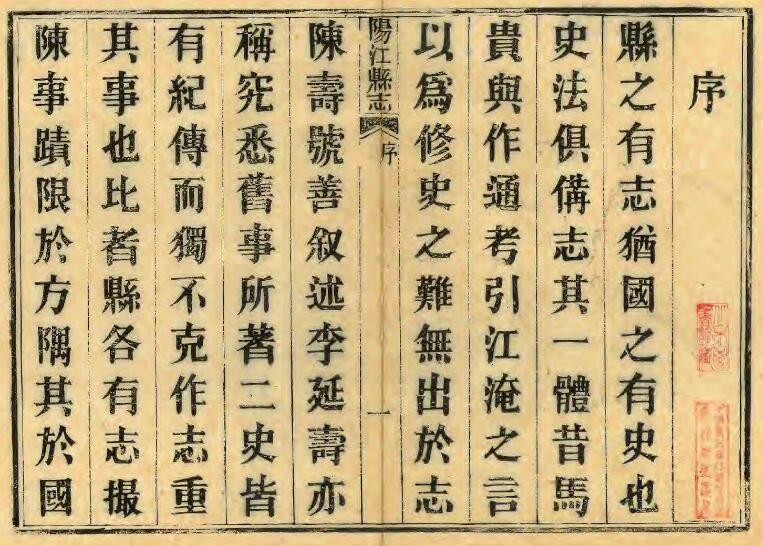 序
縣之有志猶國之有史也
史法俱備志其一體昔馬
貴與作通考引江淹之言
以爲修史之難無出於志
陽江縣志 序 一
陳壽號善叙述李延壽亦
稱究悉舊事所著二史皆
有紀傳而獨不克作志重
其事也比者縣各有志撮
陳事蹟限於方隅其於國